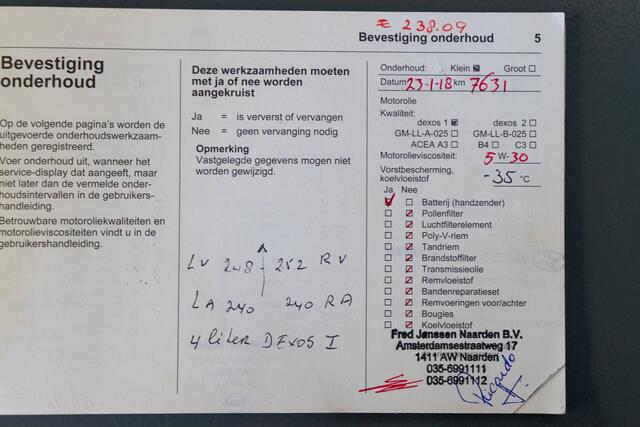 € 238.09
Bevestiging onderhoud 5
Bevestiging
onderhoud
Op de volgende pagina's worden de
uitgevoerde onderhoudswerkzaam-
heden geregistreerd.
Voer onderhoud uit, wanneer het
service-display dat aangeeft, maar
niet later dan de vermelde onder-
houdsintervallen in de gebruikers-
handleiding.
Betrouwbare motoroliekwaliteiten en
motorolieviscositeiten vindt u in de
gebruikershandleiding.
Deze werkzaamheden moeten
met ja of nee worden
aangekruist
Ja = is ververst of vervangen
Nee = geen vervanging nodig
Opmerking
Vastgelegde gegevens mogen niet
worden gewijzigd.
LV 248 - 252 RV
LA 240 240 RA
4 liter DEXOS I
Onderhoud: Klein Groot
Datum 23-1-18 km 7631
Motorolie
Kwaliteit:
dexos 1 dexos 2
GM-LL-A-025 GM-LL-B-025
ACEA A3 B4 C3
Motorolieviscositeit: 5 W-30
Vorstbescherming,
koelvloeistof -35 °C
Ja Nee
Batterij (handzender)
Pollenfilter
Luchtfilterelement
Poly-V-riem
Tandriem
Brandstoffilter
Transmissieolie
Remvloeistof
Bandenreparatieset
Remvoeringen voor/achter
Bougies
Koelvloeistof
Fred Janssen Naarden B.V.
Amsterdamsestraatweg 17
1411 AW Naarden
035-6991111
035-6991112
Ricardo